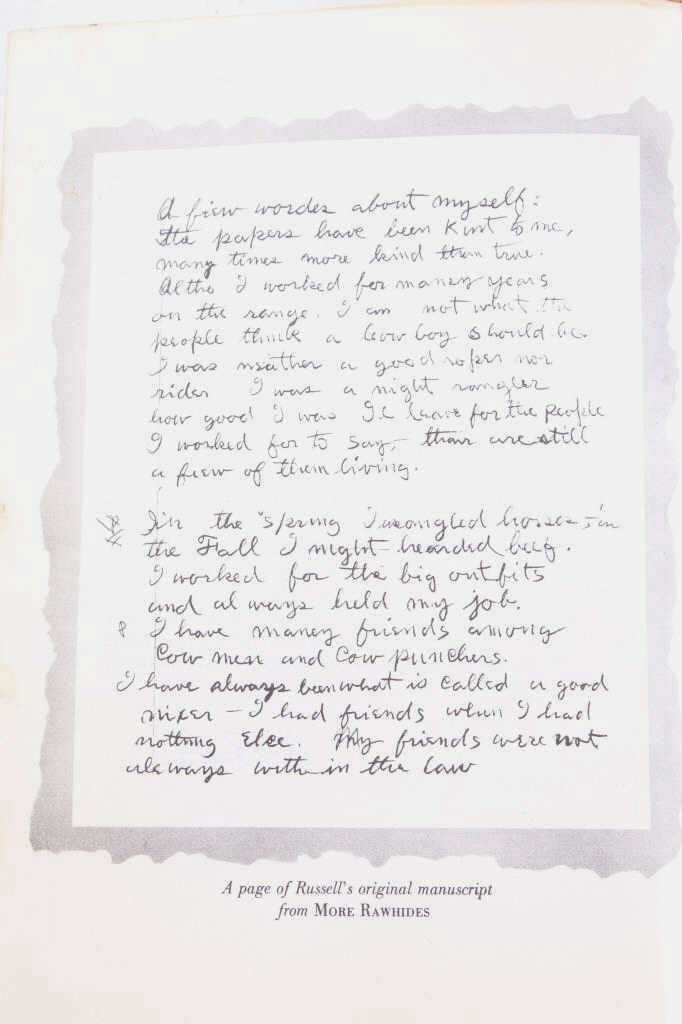 A fiew wordes about myself:
The papers have been kint to me,
many times more kind than true.
Altho I worked for maney years
on the range. I am not what the
people think a Cow boy should be.
I was neather a good roper nor
rider I was a night rangler
how good I was I'l leave for the people
I worked for to say, thair are still
a fiew of them living.
In the spring I wrangled horses, in
the Fall I night hearded beef.
I worked for the big outfits
and al ways held my job.
I have maney friends among
Cow men and Cow punchers.
I have always been what is called a good
mixer — I had friends when I had
nothing else. My friends were not
alwways with in the law
A page of Russell's original manuscript
from MORE RAWHIDES